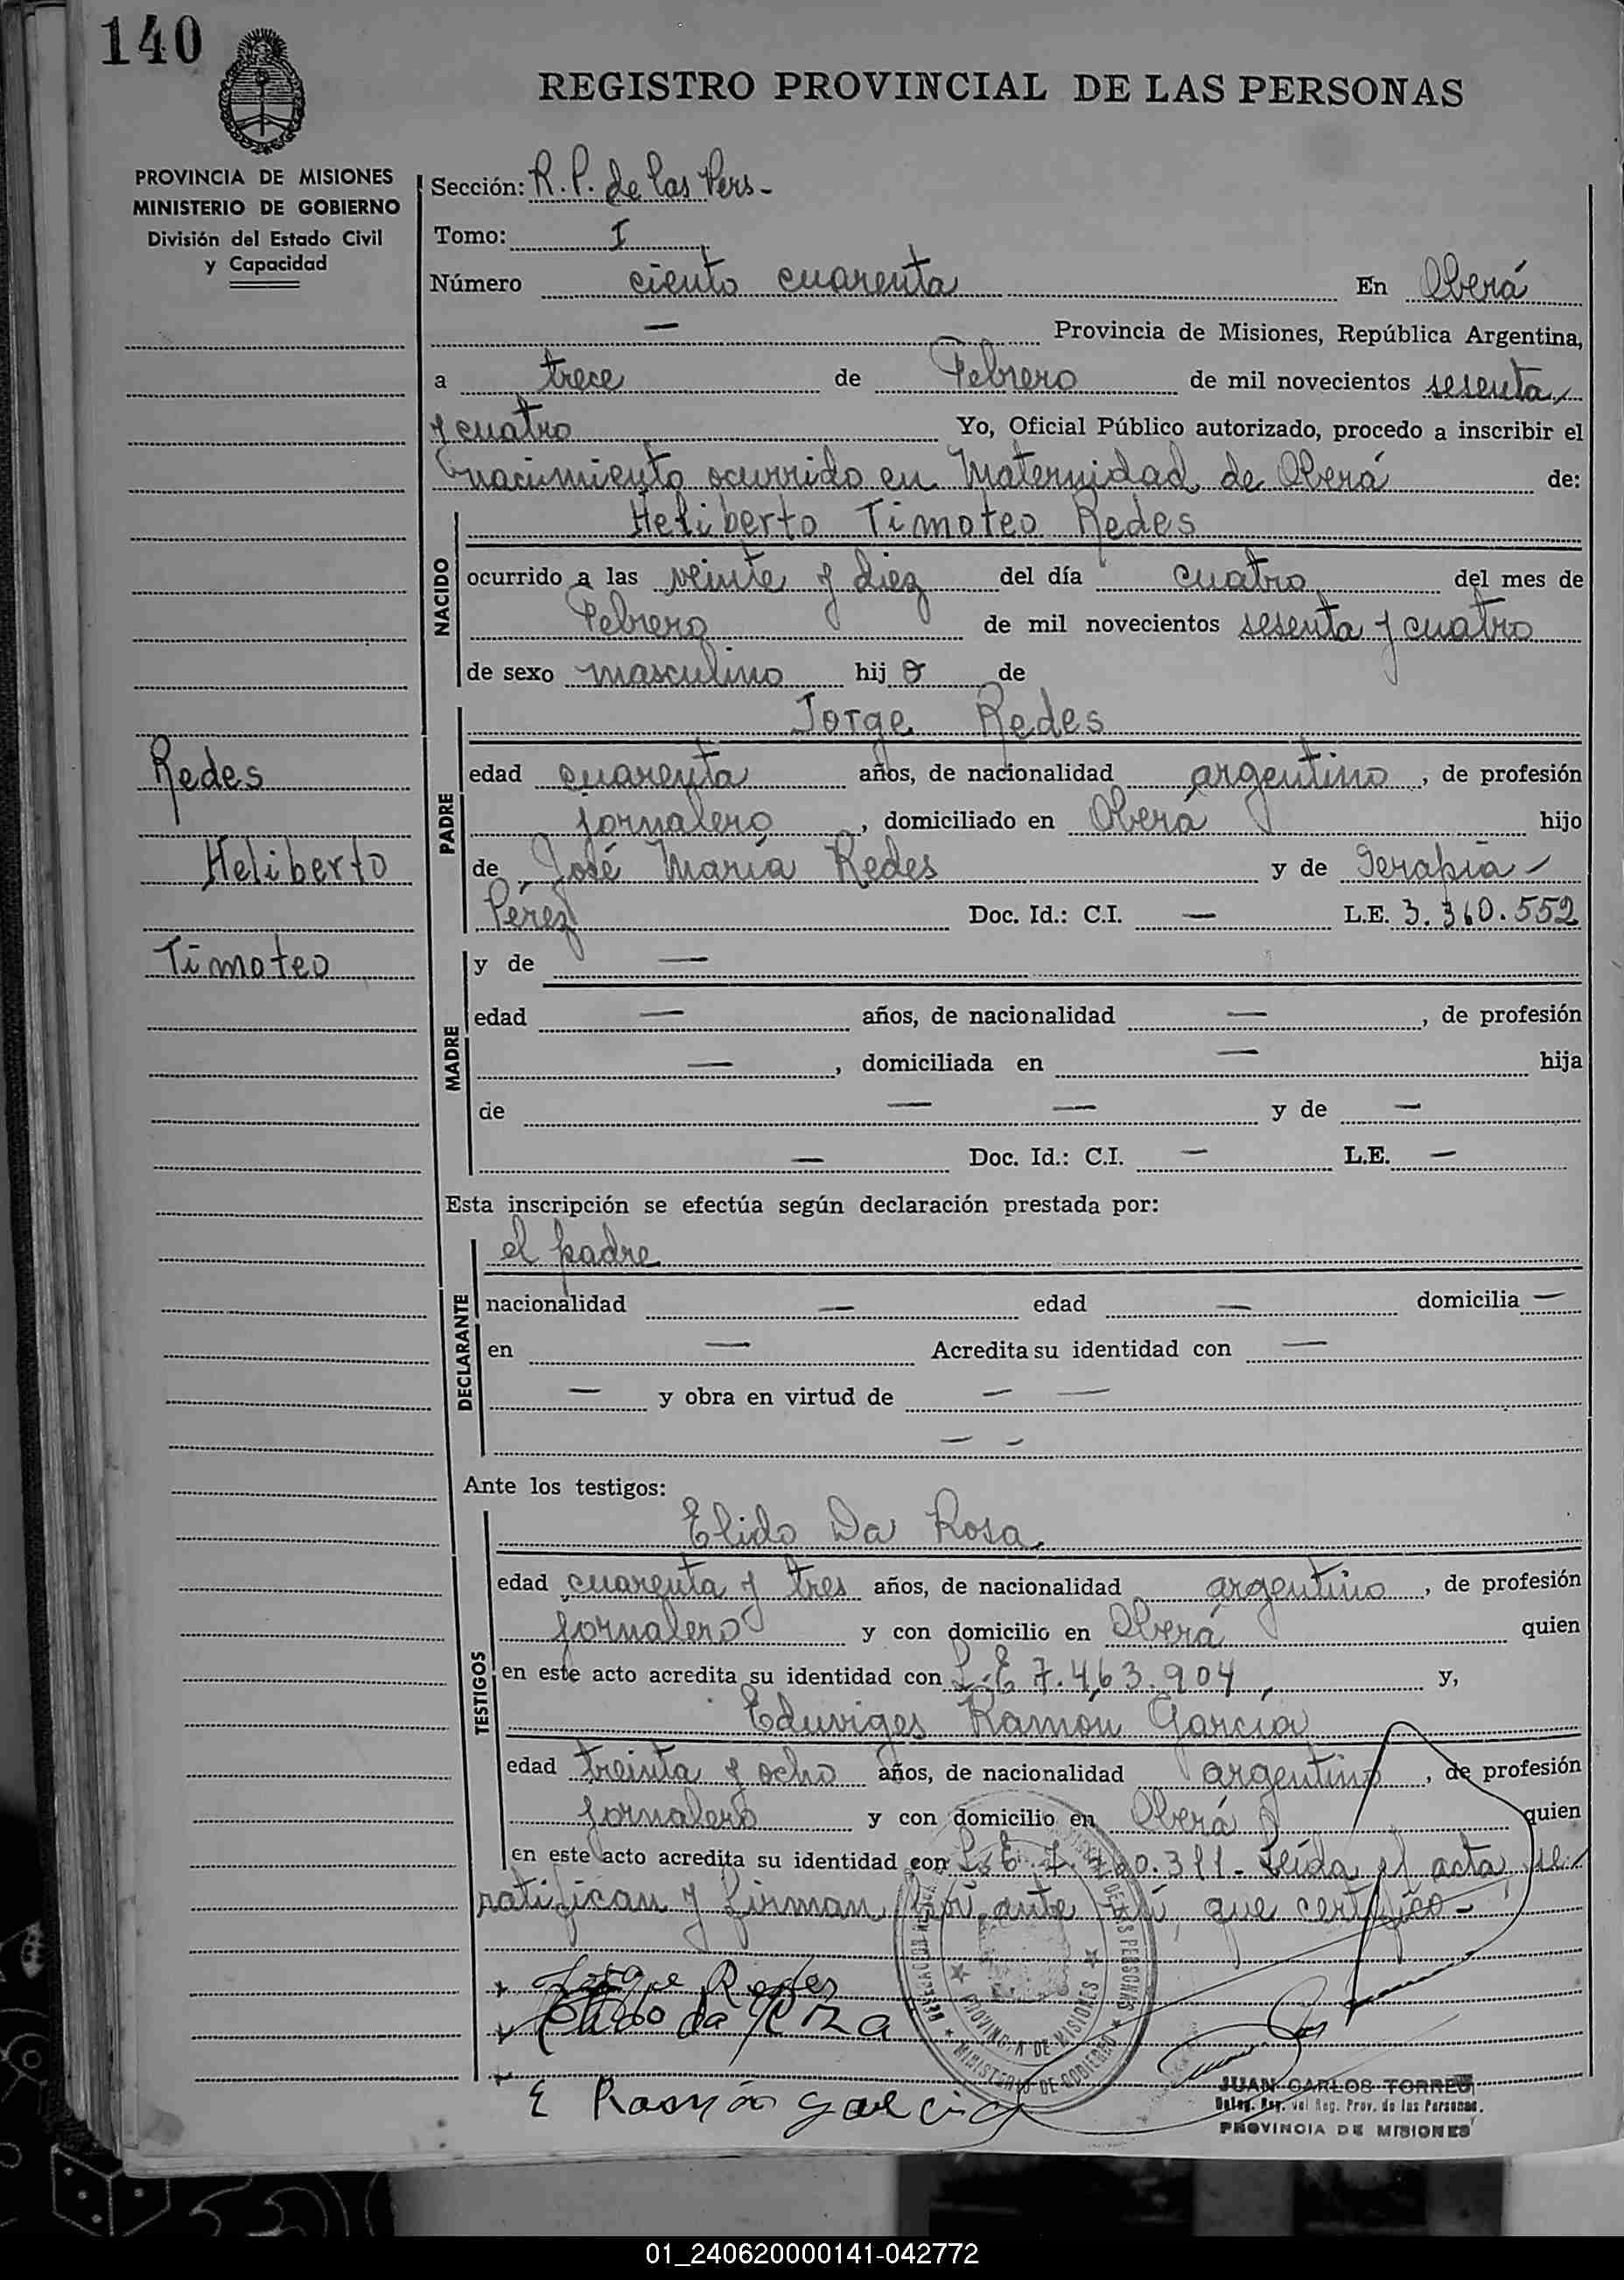 140
REGISTRO PROVINCIAL DE LAS PERSONAS
PROVINCIA DE MISIONES
MINISTERIO DE GOBIERNO
División del Estado Civil
y Capacidad
Sección: R.P. de las Pers-
Tomo: I
Número ciento cuarenta En Oberá
— Provincia de Misiones, República Argentina,
a trece de Febrero de mil novecientos sesenta
y cuatro Yo, Oficial Público autorizado, procedo a inscribir el
nacimiento ocurrido en Maternidad de Oberá de:
NACIDO
Heliberto Timoteo Redes
ocurrido a las veinte y diez del día cuatro del mes de
Febrero de mil novecientos sesenta y cuatro
de sexo masculino hijo de
PADRE
Jorge Redes
Redes
edad cuarenta años, de nacionalidad argentino, de profesión
jornalero, domiciliado en Oberá hijo
Heliberto
de José María Redes y de Serapia
Pérez Doc. Id.: C.I. — L.E. 3.360.552
Timoteo
MADRE
y de —
edad — años, de nacionalidad —, de profesión
—, domiciliada en — hija
de — — y de —
— Doc. Id.: C.I. — L.E. —
Esta inscripción se efectúa según declaración prestada por:
DECLARANTE
el padre
nacionalidad — edad — domicilia —
en — Acredita su identidad con —
— y obra en virtud de — —
— —
Ante los testigos:
TESTIGOS
Elido Da Rosa
edad cuarenta y tres años, de nacionalidad argentino, de profesión
jornalero y con domicilio en Oberá quien
en este acto acredita su identidad con L.E 7.463.904, y,
Eduviges Ramon Garcia
edad treinta y ocho años, de nacionalidad argentino, de profesión
jornalero y con domicilio en Oberá quien
en este acto acredita su identidad con L.E. Leída el acta, se
ratifican y firman, por ante mí, que certifico-
Jorge Redes
Elido da Roza
E Ramón garcia
PROVINCIA DE MISIONES
MINISTERIO DE GOBIERNO
JUAN CARLOS TORRES
Reg. Prov. de las Personas.
PROVINCIA DE MISIONES
01_240620000141-042772